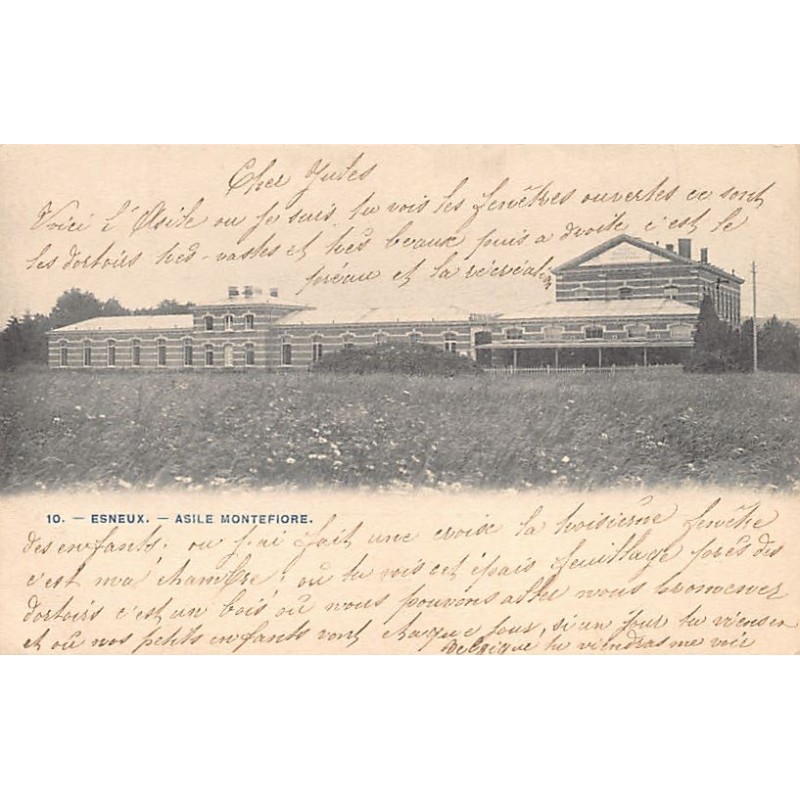 Cher Jules
Voici l'Asile ou je suis, tu vois les fenêtres ouvertes ce sont
les dortoirs très-vastes et très beaux puis a droite c'est le
préau et la récréation
10. — ESNEUX. — ASILE MONTEFIORE.
des enfants. ou j'ai fait une croix la troisième fenêtre
c'est ma chambre; où tu vois cet épais feuillage près des
dortoirs c'est un bois où nous pouvons aller nous promener
et où nos petits enfants vont chaque jour, si un jour tu viens en
Belgique tu viendras me voir